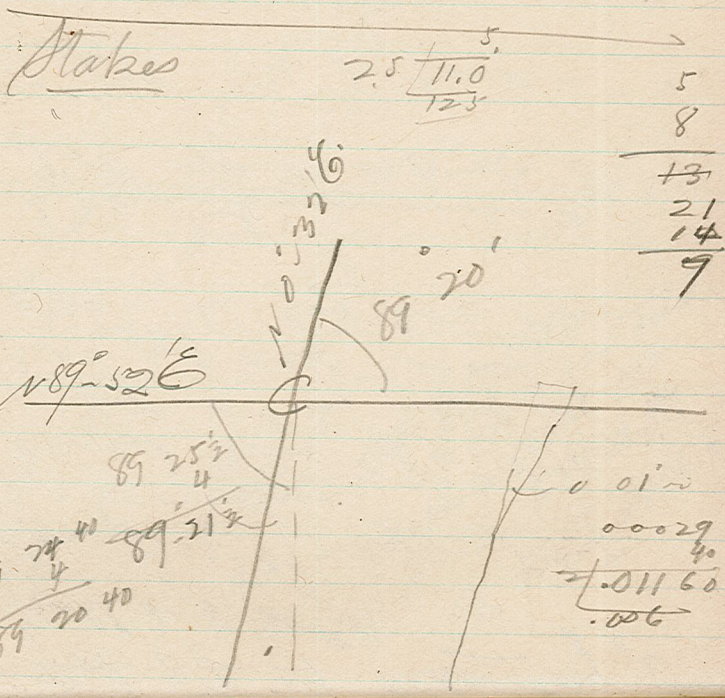 Stakes
5.
2.5 11.0
125
5
8
13
21
14
9
N 0°-32'E.
89° 20'
N 89°-52'E
89 25 1/2
4
89°-21' 1/2
24 40
4
89 20 40
0 01'
00029
40
2 .01160
.006